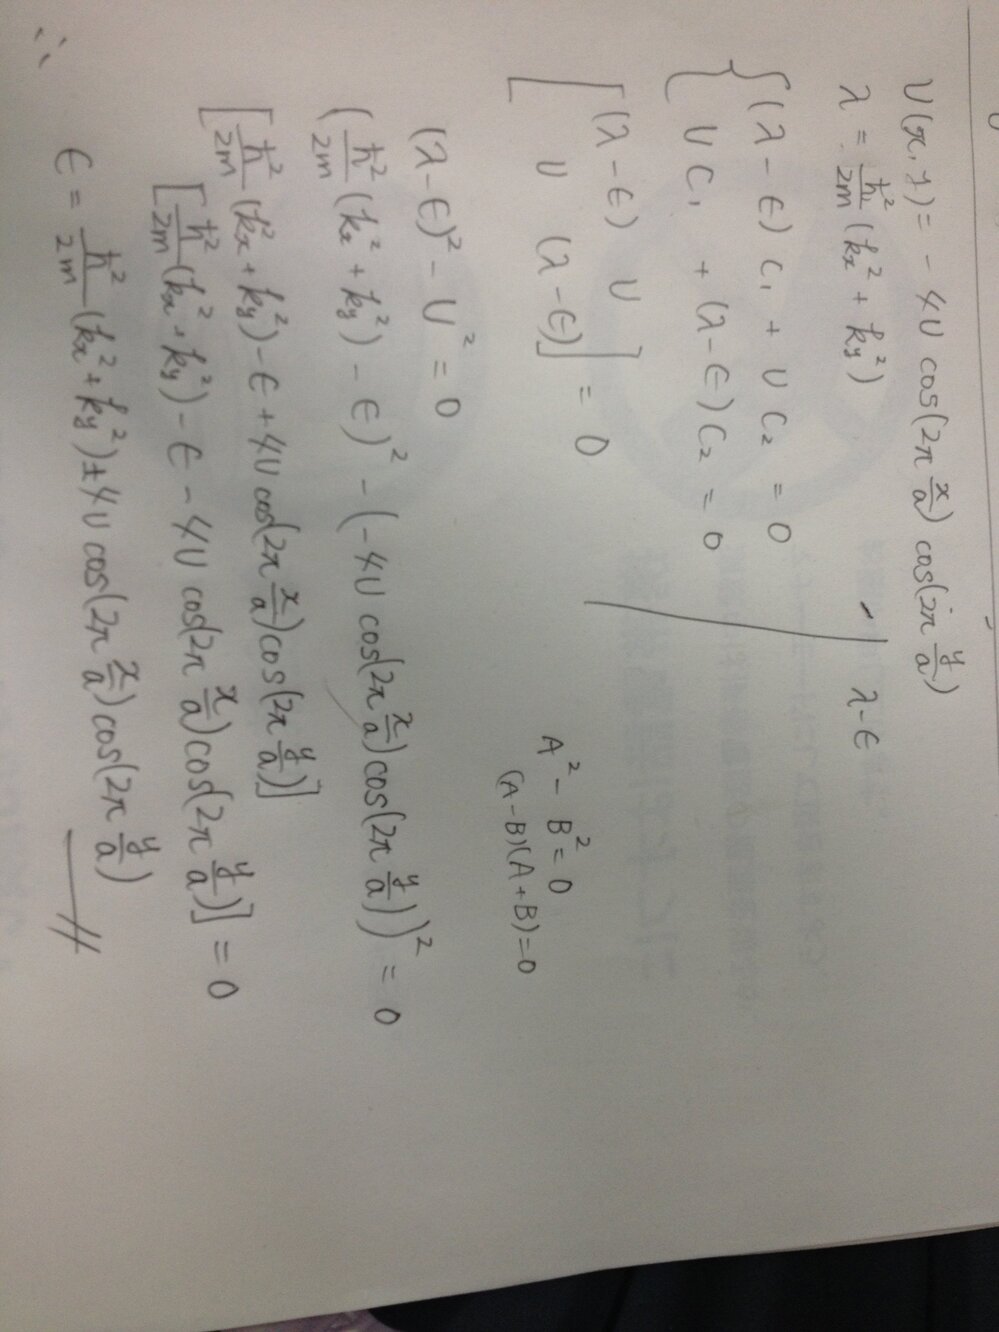 U(x, y) = - 4U cos(2π x/a) cos(2π y/a)
λ = ħ²/2m (kx² + ky²)
λ - ϵ
{ (λ - ϵ) C₁ + U C₂ = 0
U C₁ + (λ - ϵ) C₂ = 0
[ (λ - ϵ) U
U (λ - ϵ) ] = 0
A² - B² = 0
(A - B)(A + B) = 0
(λ - ϵ)² - U² = 0
(ħ²/2m (kx² + ky²) - ϵ)² - (-4U cos(2π x/a) cos(2π y/a))² = 0
[ħ²/2m (kx² + ky²) - ϵ + 4U cos(2π x/a) cos(2π y/a)]
[ħ²/2m (kx² + ky²) - ϵ - 4U cos(2π x/a) cos(2π y/a)] = 0
∴ ϵ = ħ²/2m (kx² + ky²) ± 4U cos(2π x/a) cos(2π y/a)